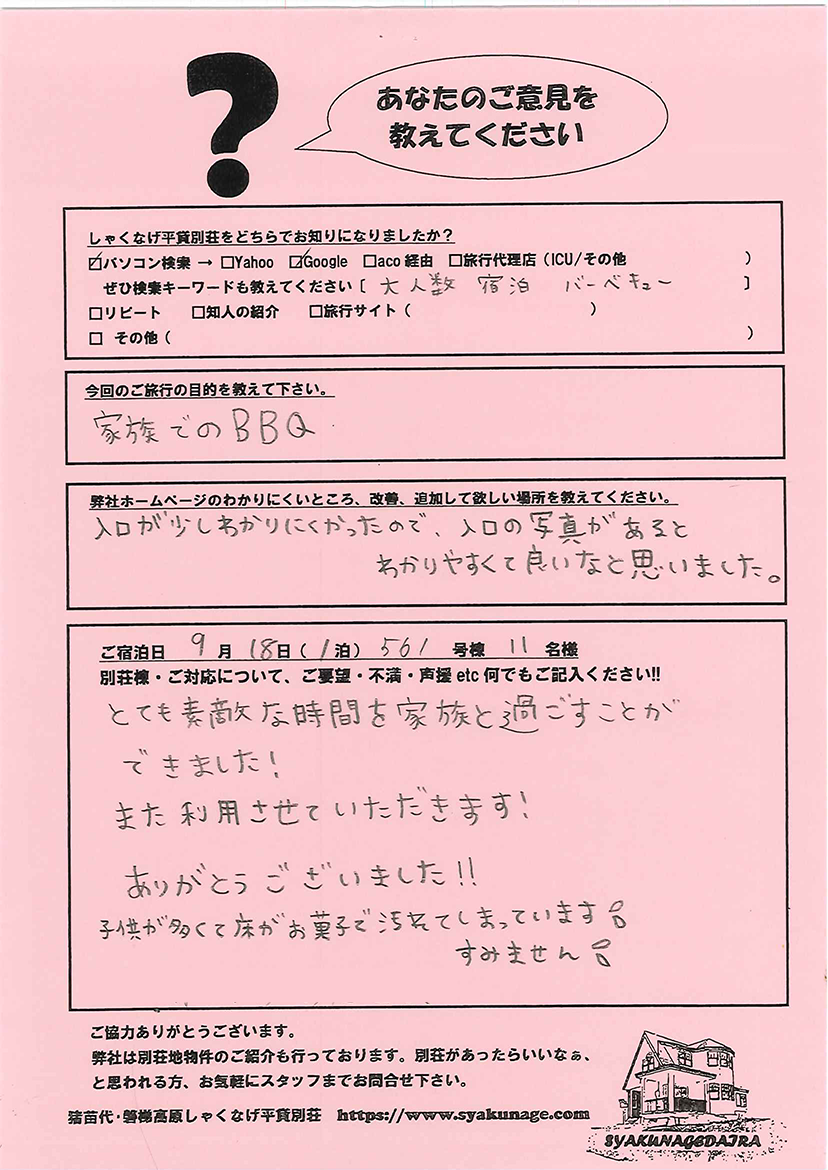 ?
あなたのご意見を
教えてください
しゃくなげ平貸別荘をどちらでお知りになりましたか？
☑パソコン検索 → □Yahoo ☑Google □aco経由 □旅行代理店（ICU/その他 ）
ぜひ検索キーワードも教えてください［ 大人数 宿泊 バーベキュー ］
□リピート □知人の紹介 □旅行サイト（ ）
□ その他（ ）
今回のご旅行の目的を教えて下さい。
家族でのBBQ
弊社ホームページのわかりにくいところ、改善、追加して欲しい場所を教えてください。
入口が少しわかりにくかったので、入口の写真があると
わかりやすくて良いなと思いました。
ご宿泊日 9月 18日（1泊）561 号棟 11 名様
別荘棟・ご対応について、ご要望・不満・声援etc何でもご記入ください!!
とても素敵な時間を家族と過ごすことが
できました！
また利用させていただきます！
ありがとうございました!!
子供が多くて床がお菓子で汚れてしまっています
すみません
ご協力ありがとうございます。
弊社は別荘地物件のご紹介も行っております。別荘があったらいいなぁ、
と思われる方、お気軽にスタッフまでお問合せ下さい。
猪苗代・磐梯高原しゃくなげ平貸別荘 https://www.syakunage.com
SYAKUNAGEDAIRA